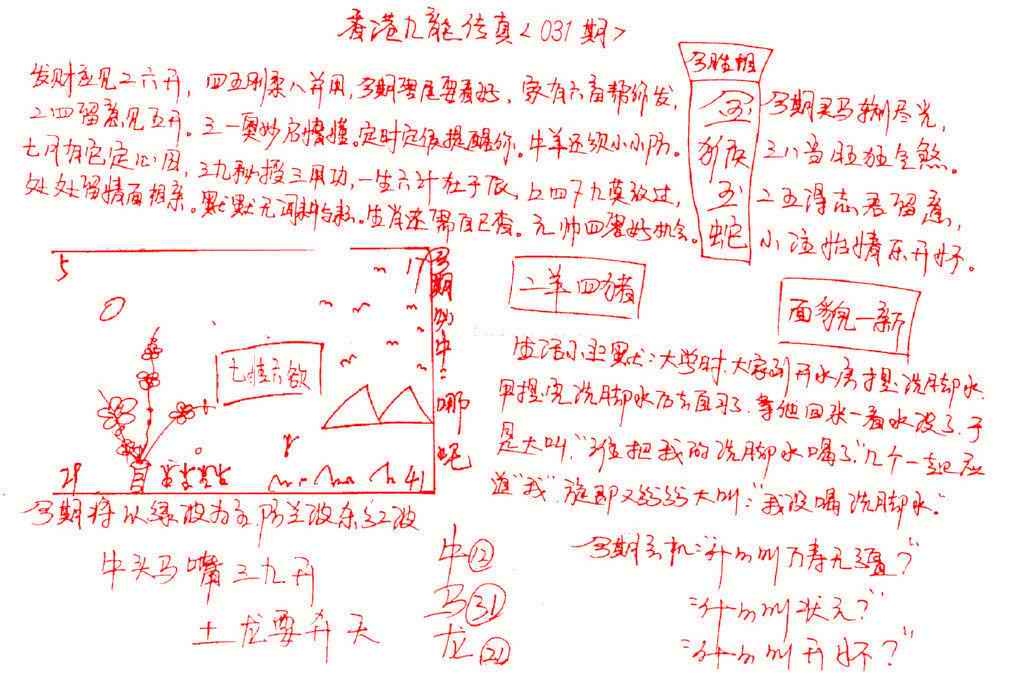 香港九龙传真<031期>
发财应见二六开，四五刚柔八并用，今期留尾要看好，家有六畜帮你发，
二四留意见五开。三一奥妙启情怀。定时定候提醒你。牛羊还须小小防。
七月相定定心田，三九秘授三用功，一生六计在于辰，占四下九莫放过，
处处留情面相亲。默默无闻耕与耘。生肖还需自己查。元帅四留好机会。
今胜相
金猴
玉蛇
今期买马输尽光，
三八当旺狂全煞。
二五得志君留意，
小注怡情乐开怀。
二羊四猪
面貌一新
5
17
29
41
七情六欲
今期必中:哪吧
生活小幽默：大学时，大家到开水房提洗脚水，
甲提完洗脚水后去自习了，等他回来一看水没了，于
是大叫，“谁把我的洗脚水喝了”几个一起应
道“我”旋即又纷纷大叫：“我没喝洗脚水。”
今期将以绿波为主，防兰波东红波
牛头马嘴三九开
土龙要升天
牛⑫
马㉛
龙㉑
今期玄机：“什么叫万寿无疆？”
“什么叫状元？”
“什么叫开怀？”